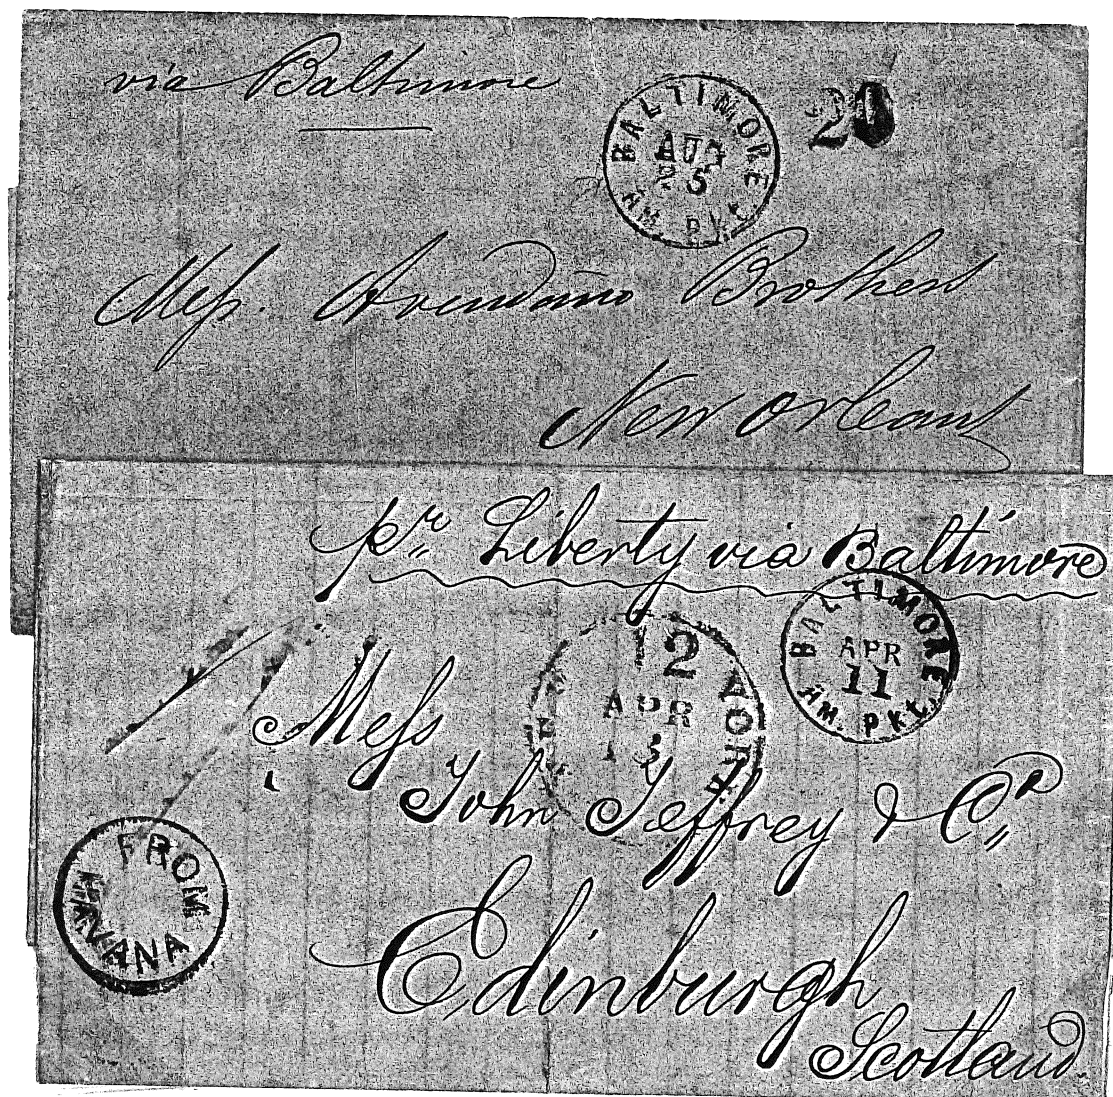 via Baltimore
BALTIMORE
AUG
25
AM. PKT.
20
Mess. Avendaño Brothers
New Orleans
pr. Liberty via Baltimore
BALTIMORE
APR
11
AM. PKT.
12
APR
13
YORK
Mess
John Jeffrey & Co.
FROM
HAVANA
Edinburgh
Scotland.